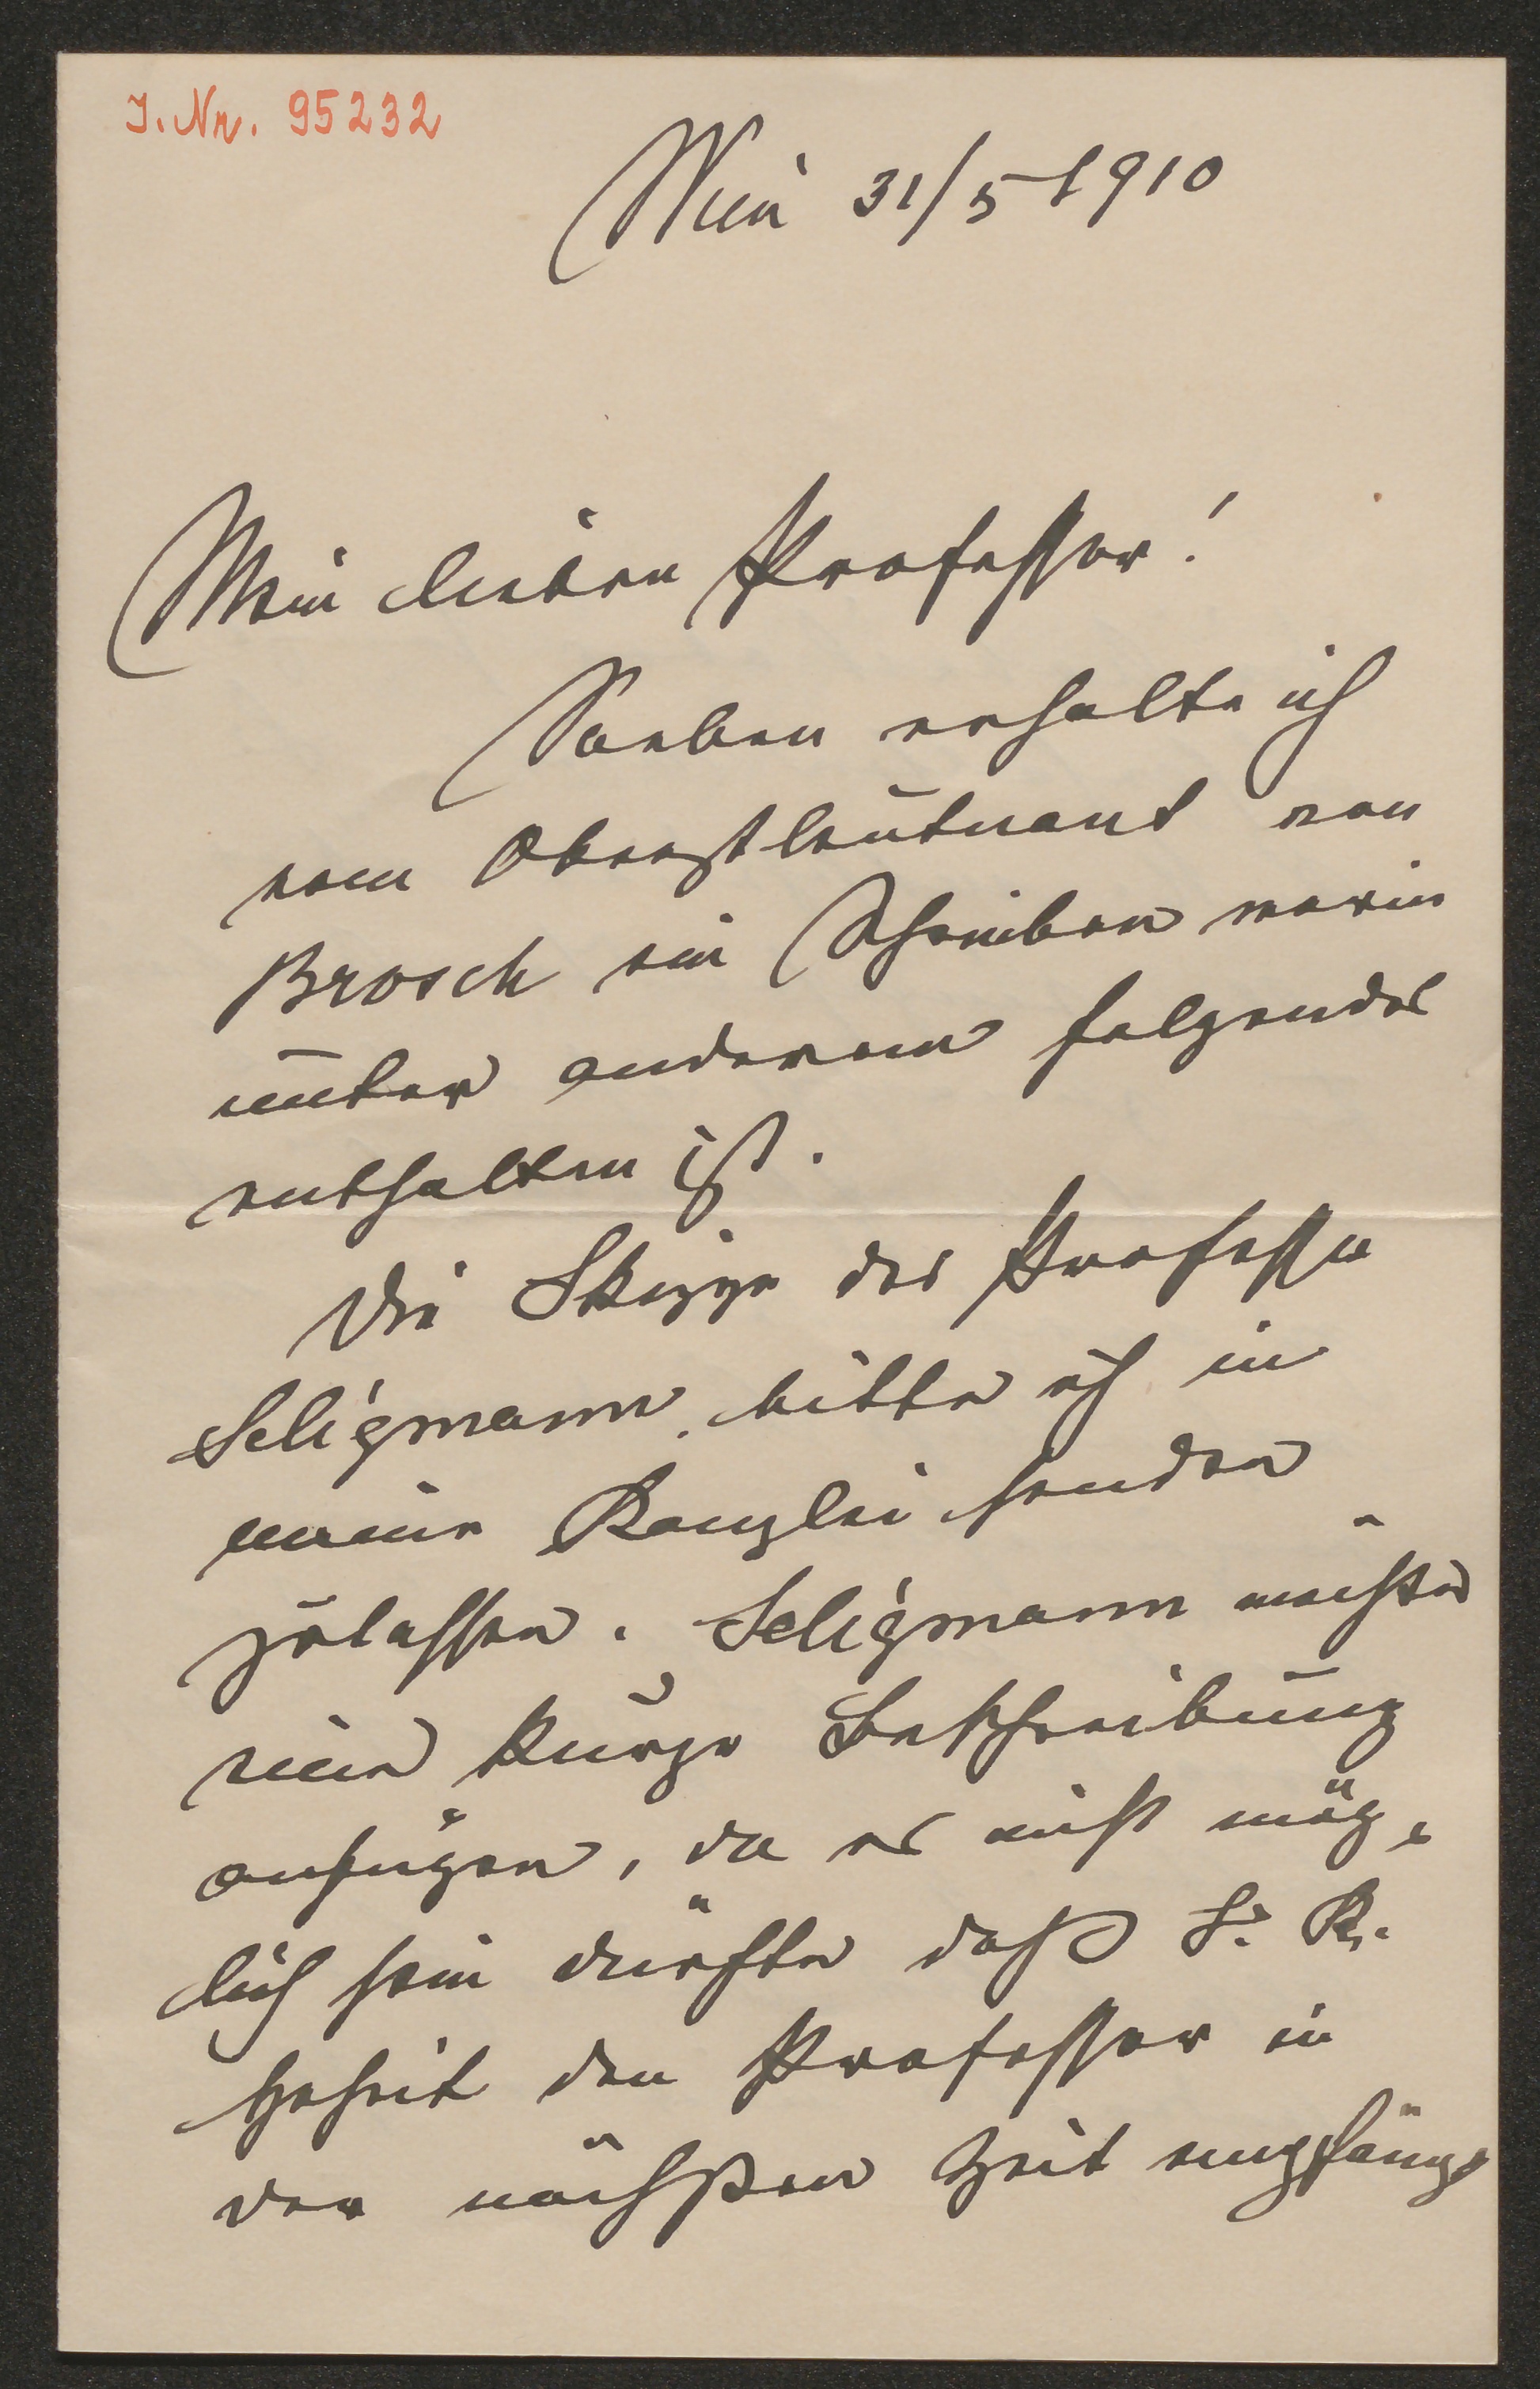 I. Nr. 95232
Wien 31/5 1910
Mein lieber Professor!
Soeben erhalte ich
vom Oberstleutnant von
Brosch ein Schreiben worin
unter anderem folgendes
enthalten ist.
Die Skizze des Professor
Seligmann bitte ich in
meine Kanzlei senden
zu lassen. Seligmann möchte
eine kurze Beschreibung
anfügen, da es nicht mög-
lich sein dürfte daß S. K.
Hoheit den Professor in
der nächsten Zeit empfängt